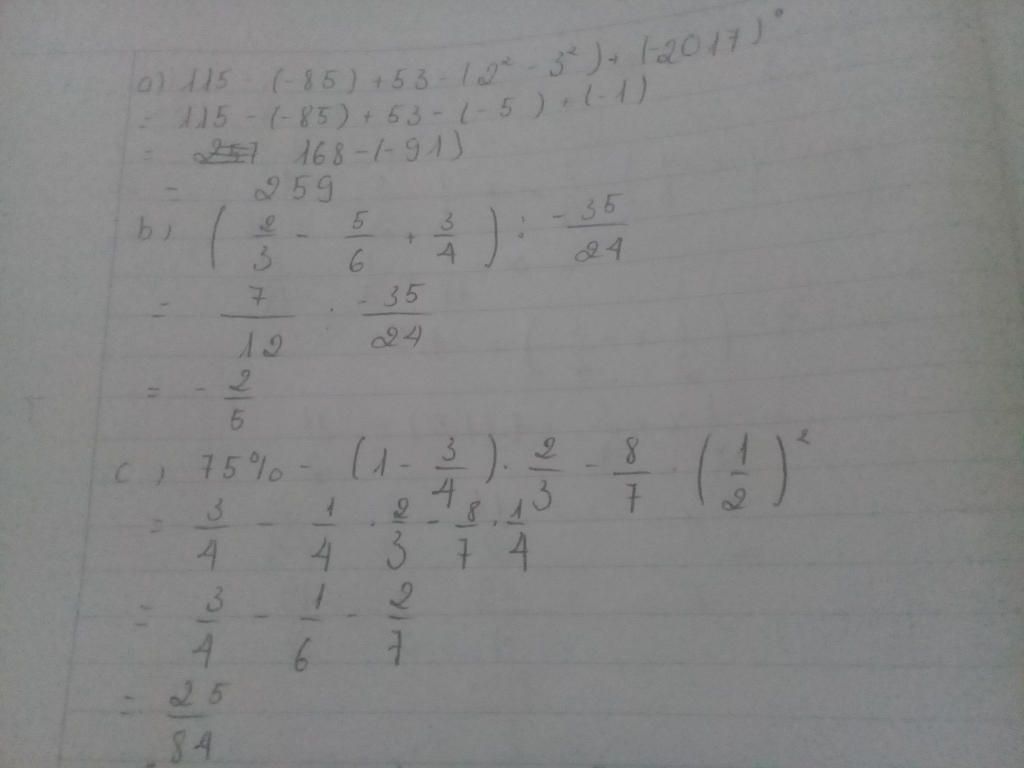 a) 115 - (-85) + 53 - (2² - 3²) + (-2017)⁰
= 115 - (-85) + 53 - (-5) + (-1)
= 168 - (-91)
= 259
b) (2/3 - 5/6 + 3/4) : -35/24
= 7/12 : -35/24
= - 2/5
c) 75% - (1 - 3/4) . 2/3 - 8/7 . (1/2)²
= 3/4 - 1/4 . 2/3 - 8/7 . 1/4
= 3/4 - 1/6 - 2/7
= 25/84